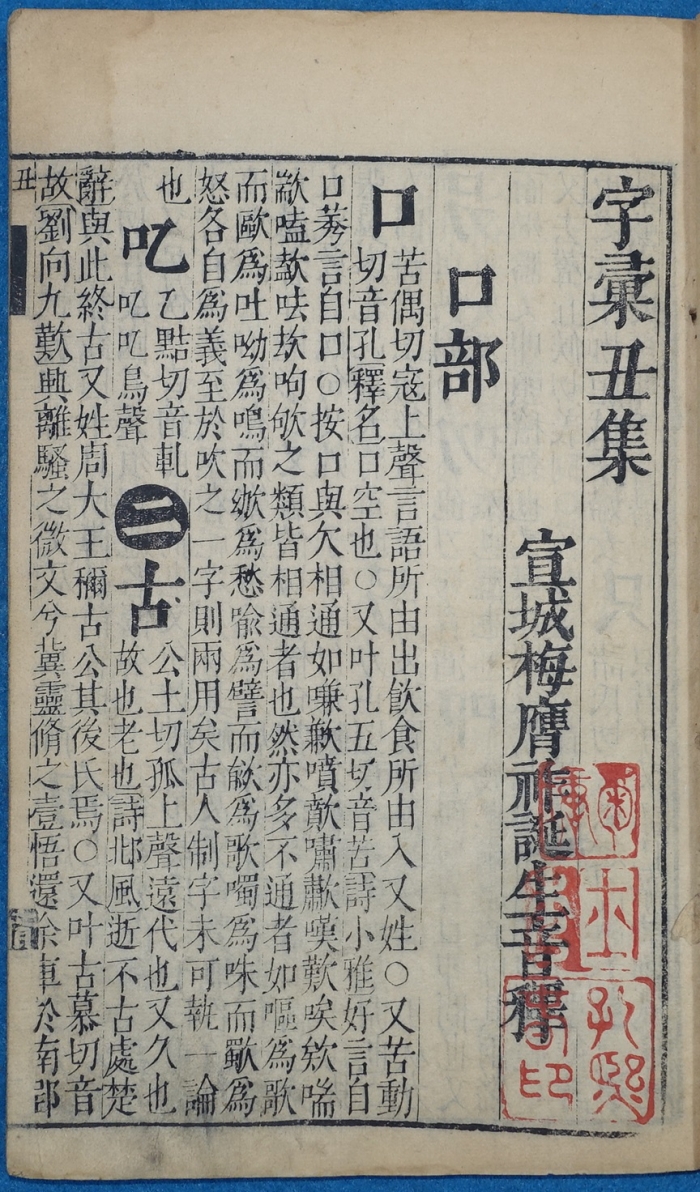 字彙丑集
宣城梅膺祚誕生音釋
口部
口 苦偶切寇上聲言語所由出飲食所由入又姓○又苦動
切音孔釋名口空也○又叶孔五切音苦詩小雅好言自
口莠言自口○按口與欠相通如嗛歉噴歕嘯歗嘆歎唉欸喘
歂嗑㰤呿㰦呴欨之類皆相通者也然亦多不通者如嘔爲歌
而歐爲吐呦爲鳴而㰶爲愁喻爲譬而歈爲歌噣爲咮而歜爲
怒各自爲義至於吹之一字則兩用矣古人制字未可執一論
也
吃 乙點切音軋
吃吃鳥聲
二
古 公土切孤上聲遠代也又久也
故也老也詩邶風逝不古處楚
辭與此終古又姓周大王穪古公其後氏焉○又叶古慕切音
故劉向九歎興離騷之微文兮兾靈脩之壹悟還余車於南郢
丑